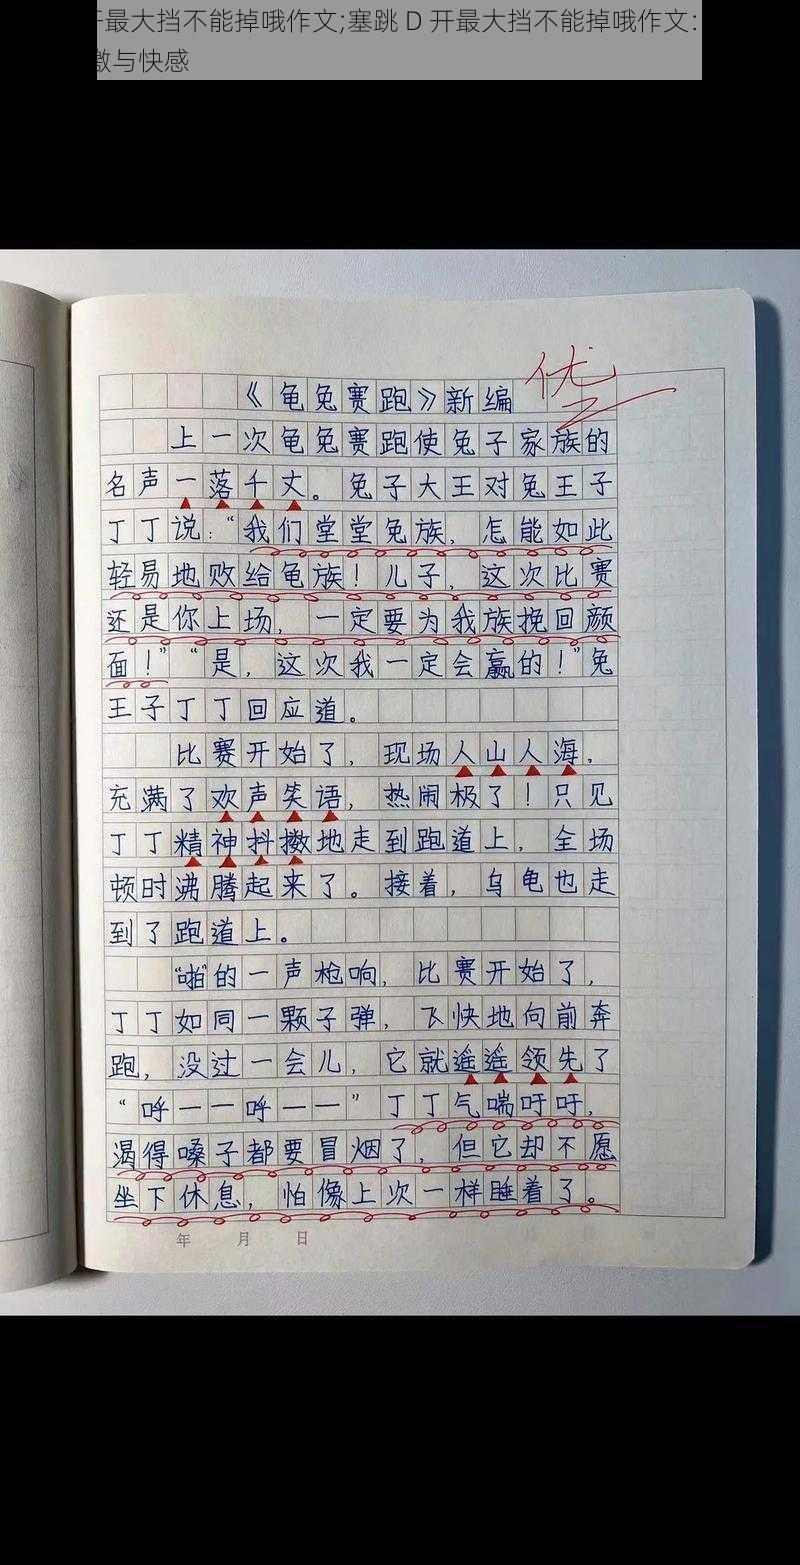 开最大挡不能掉哦作文;塞跳 D 开最大挡不能掉哦作文:
激与快感
优
《龟兔赛跑》新编
上一次龟兔赛跑使兔子家族的
名声一落千丈。兔子大王对兔王子
丁丁说:“我们堂堂兔族,怎能如此
轻易地败给龟族!儿子,这次比赛
还是你上场,一定要为我族挽回颜
面!”“是,这次我一定会赢的!”兔
王子丁丁回应道。
比赛开始了,现场人山人海,
充满了欢声笑语,热闹极了!只见
丁丁精神抖擞地走到跑道上,全场
顿时沸腾起来了。接着,乌龟也走
到了跑道上。
“啪”的一声枪响,比赛开始了,
丁丁如同一颗子弹,飞快地向前奔
跑,没过一会儿,它就遥遥领先了
“呼——呼——”丁丁气喘吁吁,
渴得嗓子都要冒烟了,但它却不愿
坐下休息,怕像上次一样睡着了。
年 月 日